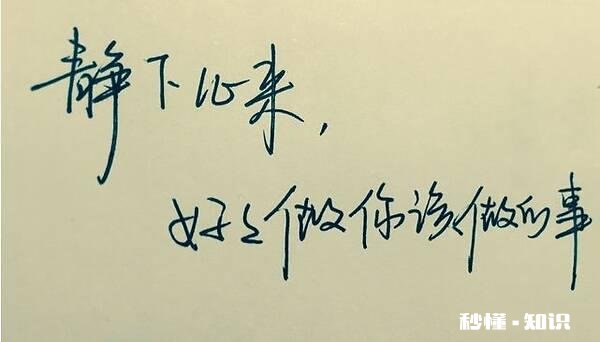 静下心来，
好々做你该做的事
秒懂·知识